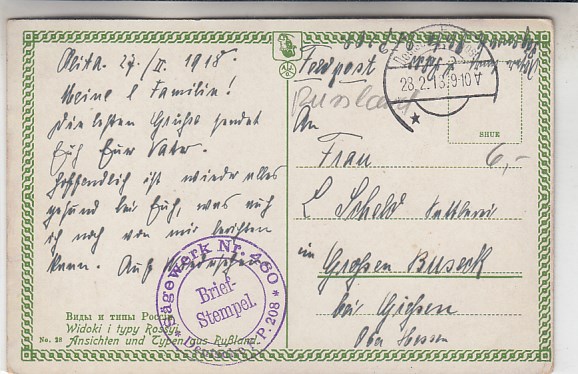 Alita. 27/II. 1918.
Meine l Familie!
Die besten Grüße sendet
Euch Euer Vater.
Hoffendlich ist wieder alles
gesund bei Euch, was auch
ich noch von mir berichten
kann. Auf Wiedersehen
Sägewerk Nr. 460
Brief-
Stempel.
* Deutsche F.P. 208 *
Виды и типы России
Widoki i typy Rosyi
No. 28 Ansichten und Typen aus Rußland.
Feldpost
28.2.18. 9-10 V
Russland
SHUE
6,-
An
Frau
L Scheld Sattlerei
in
Großen Buseck
bei Gießen
Ober Hessen